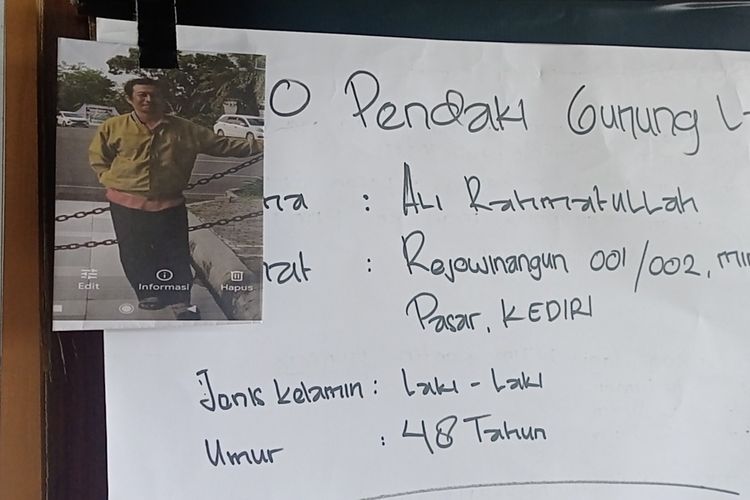 O Pendaki Gunung L
ma : Ali Rahmatullah
mat : Rejowinangun 001/002, Min
Pasar, KEDIRI
Jenis kelamin : Laki - Laki
Umur : 48 Tahun
Edit Informasi Hapus